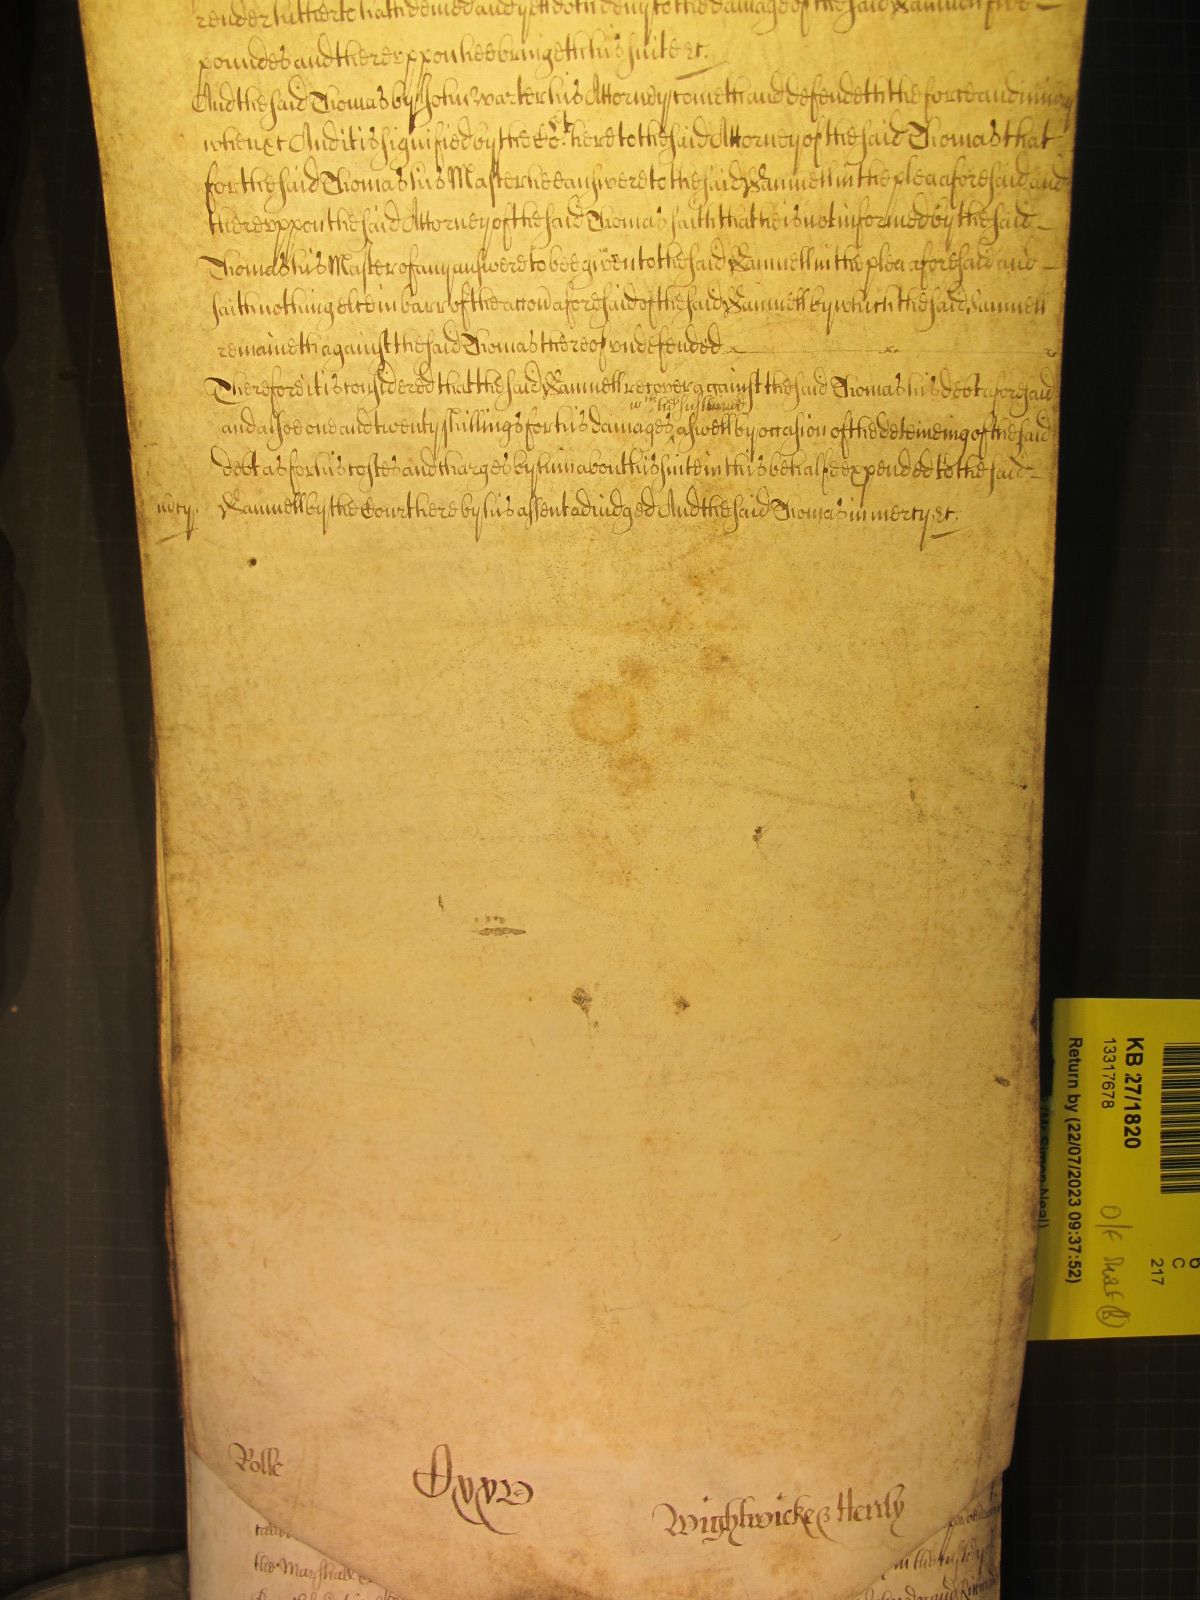 render hitherto hath denied and yett doth deny to the damage of the said Samuell five
poundes and thereuppon hee bringeth his suite &c.
And the said Thomas by John Warter his Attorney cometh and defendeth the force and iniury
when &c And it is signified by the Co:rt here to the said Attorney of the said Thomas that
for the said Thomas his Master hee answere to the said Samuell in the plea aforesaid and
thereuppon the said Attorney of the said Thomas saith that he is not informed by the said
Thomas his Master of any answere to bee given to the said Samuell in the plea aforesaid and
saith nothing else in barr of the accon aforesaid of the said Samuell by which the said Samuell
remaineth against the said Thomas thereof undefended
Therefore it is considered that the said Samuell recover against the said Thomas his debt aforesaid
wch he susteined
and alsoe one and twenty shillings for his damages aswell by occasion of the deteineing of the said
debt as for his costes and charges by him about his suite in this behalfe expended to the said
mercy. Samuell by the Court here by his assent adiudged And the said Thomas in mercy &c.
Rolle
Wightwicke & Henly
the Marshall
in the custody
KB 27/1820
13317678
Return by (22/07/2023 09:37:52)
(Mr Simon Neal)
O/F
6
C
217